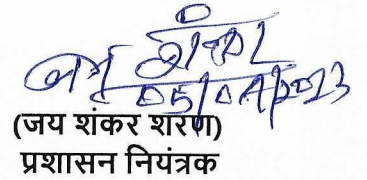 जय शंकर
05/04/2023
(जय शंकर शरण)
प्रशासन नियंत्रक